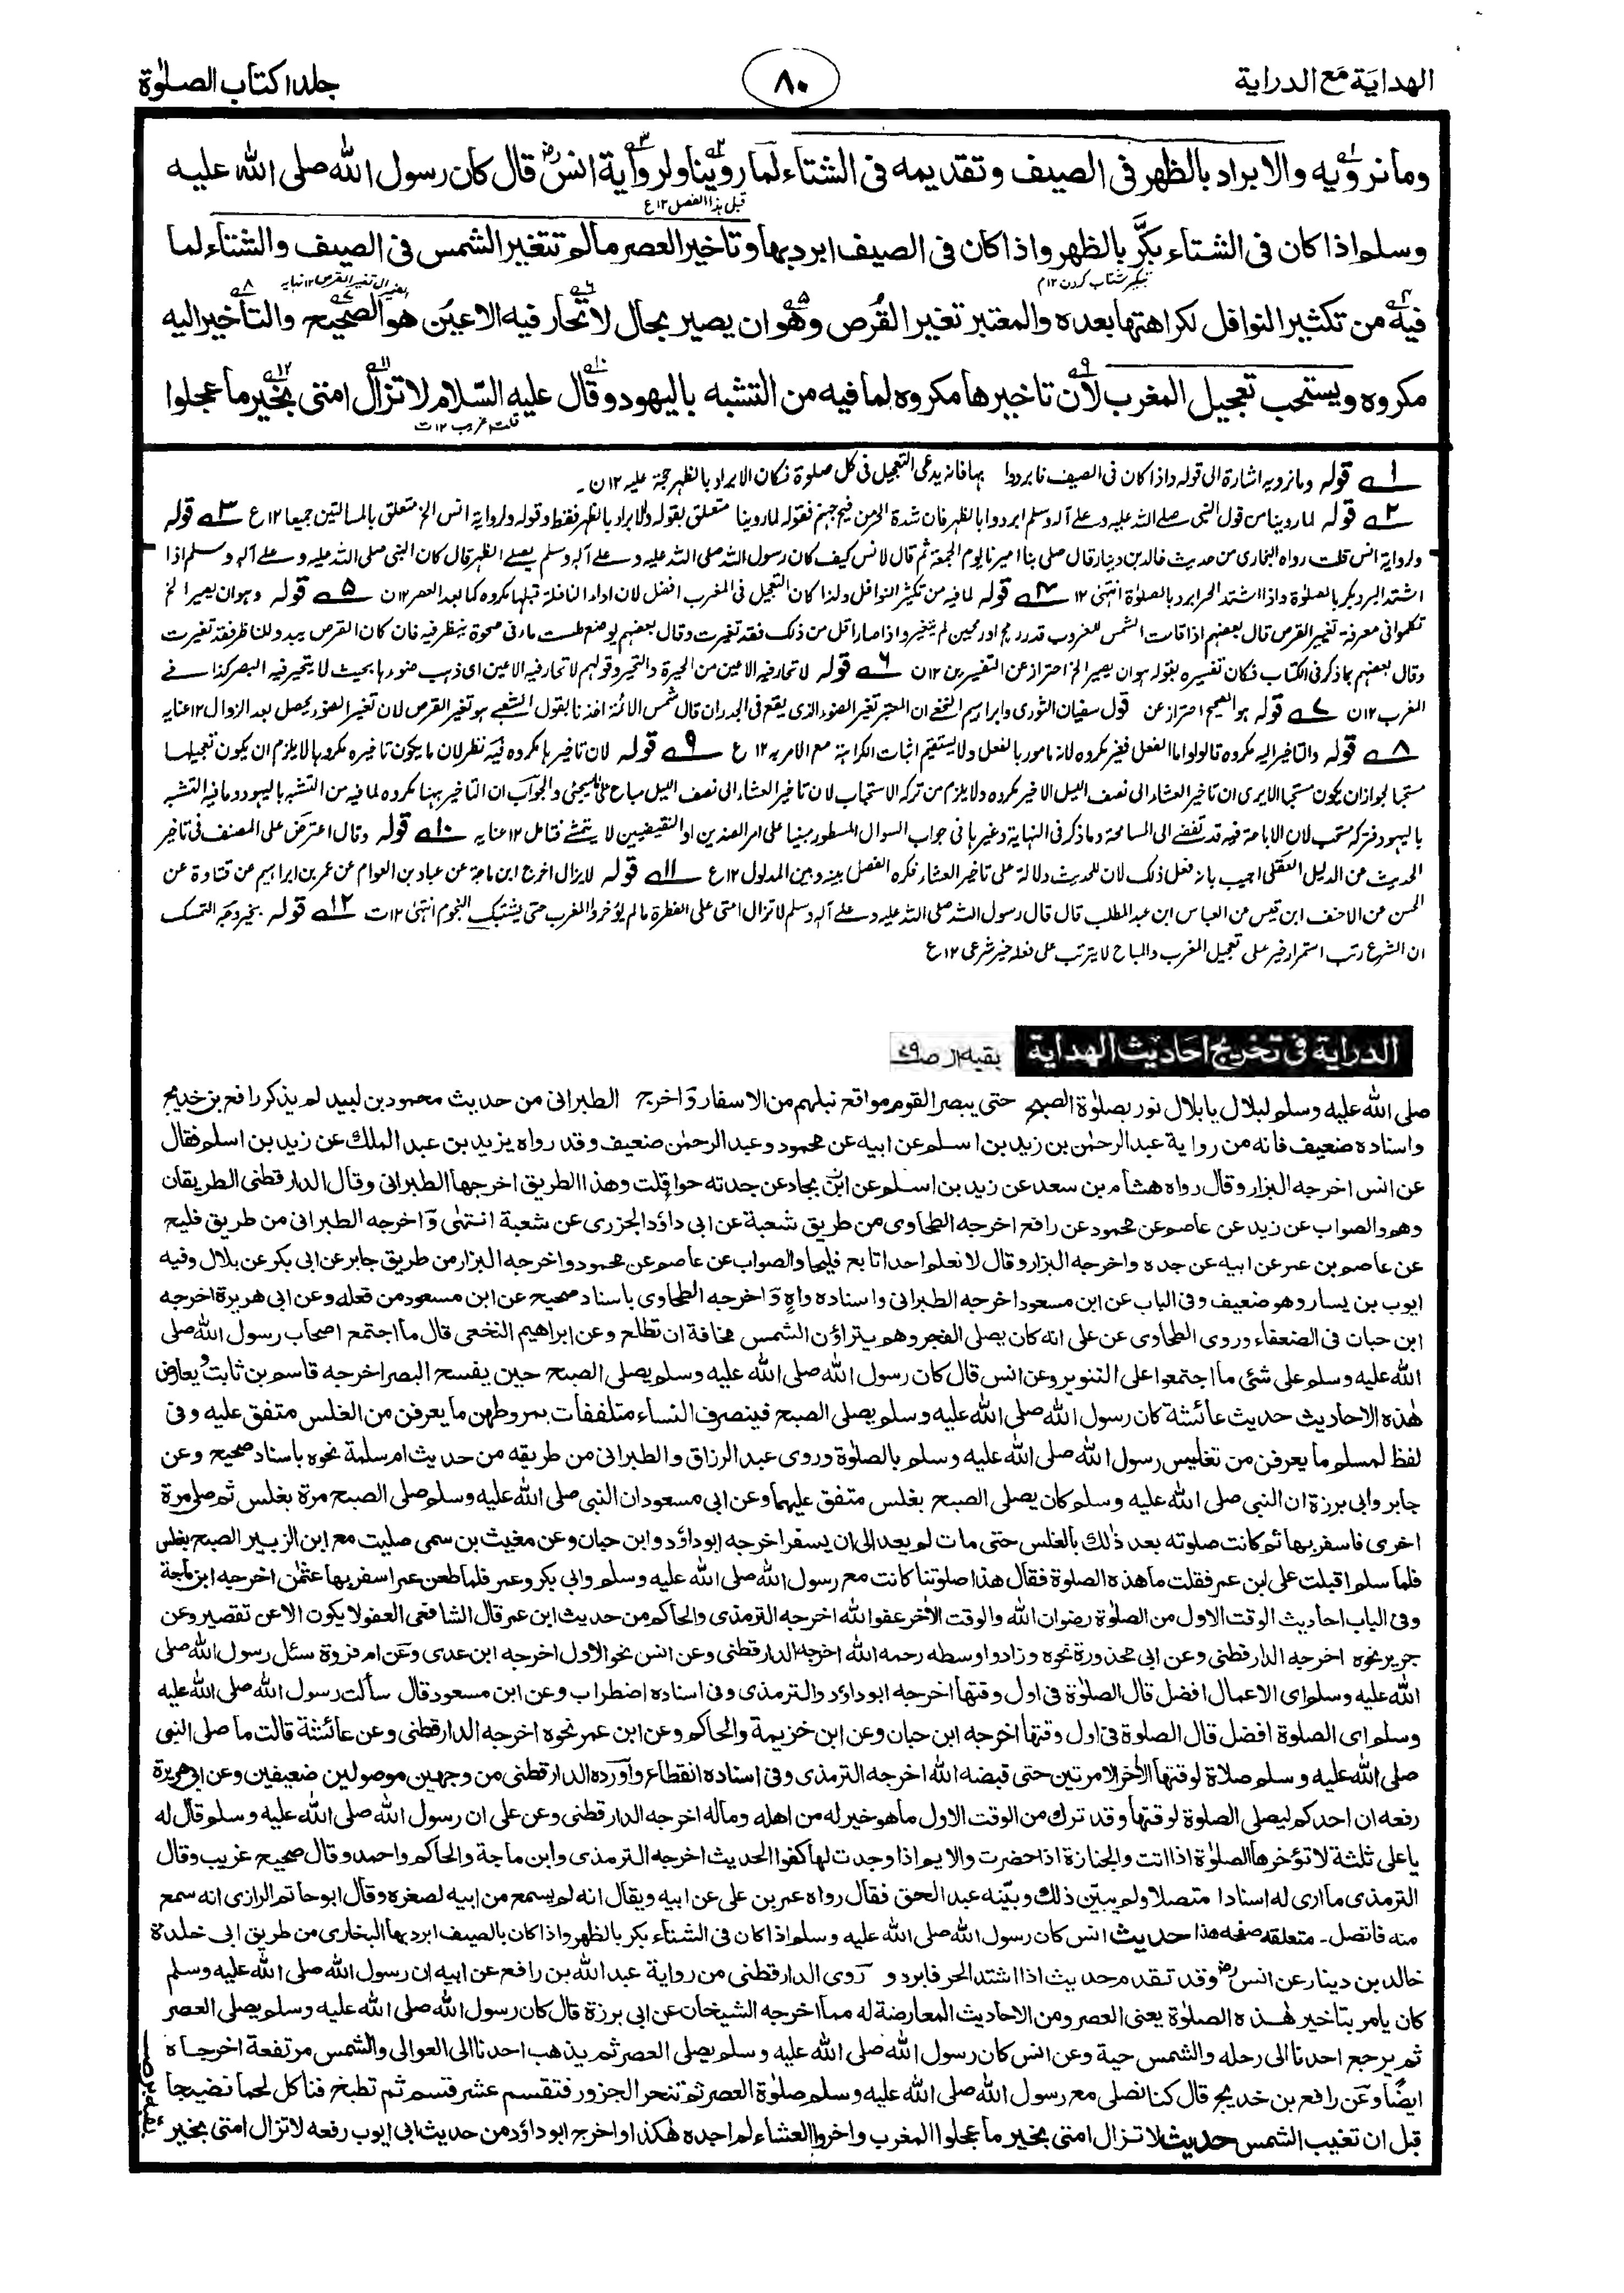 الهداية مع الدراية
٨٠
جلد١ كتاب الصلوٰة
وما نرويه والابراد بالظهر فى الصيف وتقديمه فى الشتاء لما روينا ولرواية انسؓ قال كان رسول الله صلى الله عليه
قبل هذا الفصل ١٢ ع
وسلم اذا كان فى الشتاء بكَّر بالظهر واذا كان فى الصيف ابرد بها وتاخير العصر مالم تتغير الشمس فى الصيف والشتاء لما
فيه من تكثير النوافل لكراهتها بعده والمعتبر تغير القُرص وهو ان يصير بحال لا تحار فيه الاعيُن هو الصحيح والتأخير اليه
مكروه ويستحب تعجيل المغرب لان تاخيرها مكروه لما فيه من التشبه باليهود وقال عليه السّلام لا تزال امتى بخير ما عجلوا
قلت غريب ١٢ ت
١ قوله وما نرويه اشارة الى قوله واذا كان فى الصيف فابردوا بها فانه يدعى التعجيل فى كل صلوة فكان الابراد بالظهر حجة عليه ١٢ ن۔
٢ قوله لما روينا من قول النبى صلے اللہ عليه وعلے آله وسلم ابردوا بالظهر فان شدة الحر من فيح جهنم فقوله لما روينا متعلق بقوله والابراد بالظهر فقط وقوله ولرواية انس الخ متعلق بالمسالتين جميعا ١٢ ع ٣ قوله
ولرواية انس قلت رواه البخارى من حديث خالد بن دينار قال صلى بنا اميرنا يوم الجمعة ثم قال لانس كيف كان رسول الله صلى الله عليه وعلے آله وسلم يصلے الظهر قال كان النبى صلى الله عليه وعلے آله وسلم اذا
اشتد البرد بكر بالصلوة واذا اشتد الحر ابرد بالصلوة انتهٰى ١٢ ٤ قوله لما فيه من تكثير النوافل ولذا كان التعجيل فى المغرب افضل لان اداء النافلة قبلها مكروه كما بعد العصر ١٢ ن ٥ قوله وهو ان يصير الخ
تكلموا فى معرفة تغير القرص قال بعضهم اذا قامت الشمس للغروب قدر رمح او رمحين لم يتغير واذا صار اقل من ذلك فقد تغيرت وقال بعضهم يوضع طست ماء فى صحوة ينظر فيه فان كان القرص يبدو للناظر فقد تغيرت
وقال بعضهم بما ذكر فى الكتاب فكان تفسيره بقوله هو ان يصير الخ احتراز عن التفسيرين ١٢ ن ٦ قوله لا تحار فيه الاعين من الحيرة والتحير وقولهم لا تحار فيه الاعين اى ذهب ضوءها بحيث لا يتحير فيه البصر كذا فے
المغرب ١٢ ن ٧ قوله هو الصحيح احتراز عن قول سفيان الثورى وابراهيم النخعے ان المعتبر تغير الضوء الذى يقع فى الجدران قال شمس الائمة اخذنا بقول الشعبے هو تغير القرص لان تغير الضوء يحصل بعد الزوال ١٢ عنايه
٨ قوله والتاخير اليه مكروه قالوا واما الفعل فغير مكروه لانه مامور بالفعل ولا يستقيم اثبات الكراهة مع الامر به ١٢ ع ٩ قوله لان تاخيرها مكروه فيه نظر لان ما يكون تاخيره مكروها لا يلزم ان يكون تعجيلها
مستحبا لجواز ان يكون مستحبا الا يرى ان تاخير العشاء الى نصف الليل الاخير مكروه ولا يلزم من تركه الاستحباب لان تاخير العشاء الى نصف الليل مباح على ما يجئى والجواب ان التاخير ههنا مكروه لما فيه من التشبه باليهود وما فيه التشبه
باليهود فتركه مستحب لان الاباحة فيه قد تفضے الى المسامحة وما ذكر فى النهاية وغيرها فى جواب السوال المسطور مبنيا على امر الضدين او النقيضين لا يتمشے فتامل ١٢ عنايه ١٠ قوله وقال اعترض على المصنف فى تاخير
الحديث عن الدليل العقلى اجيب بانه فعل ذلك لان للحديث دلالة على تاخير العشاء فكره الفصل بينه وبين المدلول ١٢ ع ١١ قوله لا يزال اخرج ابن ماجة عن عباد بن العوام عن عمر بن ابراهيم عن قتادة عن
الحسن عن الاحنف ابن قيس عن العباس ابن عبد المطلب قال قال رسول الله صلى الله عليه وعلے آله وسلم لا تزال امتى على الفطرة مالم يؤخروا المغرب حتى يشتبك النجوم انتهٰى ١٢ ت ١٢ قوله بخير وجه التمسك
ان الشرع رتب استمرار خير على تعجيل المغرب والمباح لا يترتب على فعله خير شرعى ١٢ ع
الدراية فى تخريج احاديث الهداية بقيه از ص٧٩
صلى الله عليه وسلم لبلال يا بلال نور بصلوٰة الصبح حتى يبصر القوم مواقع نبلهم من الاسفار وَاخرج الطبرانى من حديث محمود بن لبيد لم يذكر رافع بن خديج
واسناده ضعيف فانه من رواية عبد الرحمٰن بن زيد بن اسلم عن ابيه عن محمود وعبد الرحمٰن ضعيف وقد رواه يزيد بن عبد الملك عن زيد بن اسلم فقال
عن انس اخرجه البزار وقال رواه هشام بن سعد عن زيد بن اسلم عن ابن بجاد عن جدته حوا قلت وهذا الطريق اخرجها الطبرانى وقال الدارقطنى الطريقان
وهم والصواب عن زيد عن عاصم عن محمود عن رافع اخرجه الطحاوى من طريق شعبة عن ابى داؤد الجزرى عن شعبة انتهٰى وَاخرجه الطبرانى من طريق فليح
عن عاصم بن عمر عن ابيه عن جده واخرجه البزار وقال لا نعلم احدا تابع فليحا والصواب عن عاصم عن محمود واخرجه البزار من طريق جابر عن ابى بكر عن بلال وفيه
ايوب بن يسار وهو ضعيف وفى الباب عن ابن مسعود اخرجه الطبرانى واسناده واهٍ وَاخرجه الطحاوى باسناد صحيح عن ابن مسعود من فعله وعن ابى هريرة اخرجه
ابن حبان فى الضعفاء وروى الطحاوى عن على انه كان يصلى الفجر وهم يتراؤن الشمس مخافة ان تطلع وعن ابراهيم النخعى قال ما اجتمع اصحاب رسول الله صلى
الله عليه وسلم على شئى ما اجتمعوا على التنوير وعن انس قال كان رسول الله صلى الله عليه وسلم يصلى الصبح حين يفسح البصر اخرجه قاسم بن ثابت ويعارض
هٰذه الاحاديث حديث عائشة كان رسول الله صلى الله عليه وسلم يصلى الصبح فينصرف النساء متلففات بمروطهن ما يعرفن من الغلس متفق عليه وفى
لفظ لمسلم ما يعرفن من تغليس رسول الله صلى الله عليه وسلم بالصلوٰة وروى عبد الرزاق والطبرانى من طريقه من حديث ام سلمة نحوه باسناد صحيح وعن
جابر وابى برزة ان النبى صلى الله عليه وسلم كان يصلى الصبح بغلس متفق عليهما وعن ابى مسعود ان النبى صلى الله عليه وسلم صلى الصبح مرة بغلس ثم صلى مرة
اخرى فاسفر بها ثم كانت صلوته بعد ذٰلك بالغلس حتى مات لم يعد الى ان يسفر اخرجه ابو داؤد وابن حبان وعن مغيث بن سمى صليت مع ابن الزبير الصبح بغلس
فلما سلم اقبلت على ابن عمر فقلت ما هذه الصلوة فقال هذا صلوتنا كانت مع رسول الله صلى الله عليه وسلم وابى بكر وعمر فلما طعن عمر اسفر بها عثمٰن اخرجه ابن ماجة
وفى الباب احاديث الوقت الاول من الصلوٰة رضوان الله والوقت الاٰخر عفو الله اخرجه الترمذى والحاكم من حديث ابن عمر قال الشافعى العفو لا يكون الا عن تقصير وعن
جرير نحوه اخرجه الدارقطنى وعن ابى محذورة نحوه وزاد واوسطه رحمه الله اخرجه الدارقطنى وعن انس نحو الاول اخرجه ابن عدى وعَن ام فروة سئل رسول الله صلى
الله عليه وسلم اى الاعمال افضل قال الصلوٰة فى اول وقتها اخرجه ابو داؤد والترمذى وفى اسناده اضطراب وعن ابن مسعود قال سألت رسول الله صلى الله عليه
وسلم اى الصلوة افضل قال الصلوة فى اول وقتها اخرجه ابن حبان وعن ابن خزيمة والحاكم وعن ابن عمر نحوه اخرجه الدارقطنى وعن عائشة قالت ما صلى النبى
صلى الله عليه وسلم صلاة لوقتها الاٰخر الا مرتين حتى قبضه الله اخرجه الترمذى وفى اسناده انقطاع وَاورده الدارقطنى من وجهين موصولين ضعيفين وعن ابى هريرة
رفعه ان احدكم ليصلى الصلوة لوقتها وقد ترك من الوقت الاول ما هو خير له من اهله وماله اخرجه الدارقطنى وعن على ان رسول الله صلى الله عليه وسلم قال له
يا على ثلثة لا تؤخرها الصلوٰة اذا انت والجنازة اذا حضرت والايم اذا وجدت لها كفوا الحديث اخرجه الترمذى وابن ماجة والحاكم واحمد وقال صحيح غريب وقال
الترمذى ما ارى له اسنادا متصلا ولم يبيّن ذلك وبيّنه عبد الحق فقال رواه عمر بن على عن ابيه ويقال انه لم يسمع من ابيه لصغره وقال ابو حاتم الرازى انه سمع
منه فاتصل۔ متعلقه صفحه هذا حديث انس كان رسول الله صلى الله عليه وسلم اذا كان فى الشتاء بكر بالظهر واذا كان بالصيف ابرد بها البخارى من طريق ابى خلدة
خالد بن دينار عن انسؓ وقد تقدم حديث اذا اشتد الحر فابردو روى الدارقطنى من رواية عبد الله بن رافع عن ابيه ان رسول الله صلى الله عليه وسلم
كان يأمر بتاخير هٰذه الصلوٰة يعنى العصر ومن الاحاديث المعارضة له مما اخرجه الشيخان عن ابى برزة قال كان رسول الله صلى الله عليه وسلم يصلى العصر
ثم يرجع احدنا الى رحله والشمس حية وعن انس كان رسول الله صلى الله عليه وسلم يصلى العصر ثم يذهب احدنا الى العوالى والشمس مرتفعة اخرجاه
ايضًا وعَن رافع بن خديج قال كنا نصلى مع رسول الله صلى الله عليه وسلم صلوٰة العصر ثم تنحر الجزور فتقسم عشر قسم ثم تطبخ فناكل لحما نضيجا
قبل ان تغيب الشمس حديث لا تزال امتى بخير ما عجلوا المغرب واخروا العشاء لم اجده هٰكذا واخرج ابو داؤد من حديث ابى ايوب رفعه لا تزال امتى بخير